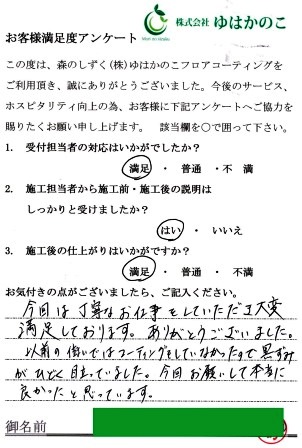 株式会社 ゆはかのこ
お客様満足度アンケート
この度は、森のしずく(株)ゆはかのこフロアコーティングを
ご利用頂き、誠にありがとうございました。今後のサービス、
ホスピタリティ向上の為、お客様に下記アンケートへご協力を
賜りたくお願い申し上げます。 該当欄を○で囲って下さい。
1. 受付担当者の対応はいかがでしたか?
満足 ・ 普通 ・ 不 満
2. 施工担当者から施工前・施工後の説明は
しっかりと受けましたか?
はい ・ いいえ
3. 施工後の仕上がりはいかがですか?
満足 ・ 普通 ・ 不 満
お気付きの点がございましたら、ご記入ください。
今回は丁寧なお仕事をしていただき大変
満足しております。ありがとうございました。
以前の 住いではコーティングをしていなかったので黒ずみ
がひどく目立っていました。今回お願いして本当に
良かったと思っています。
御名前